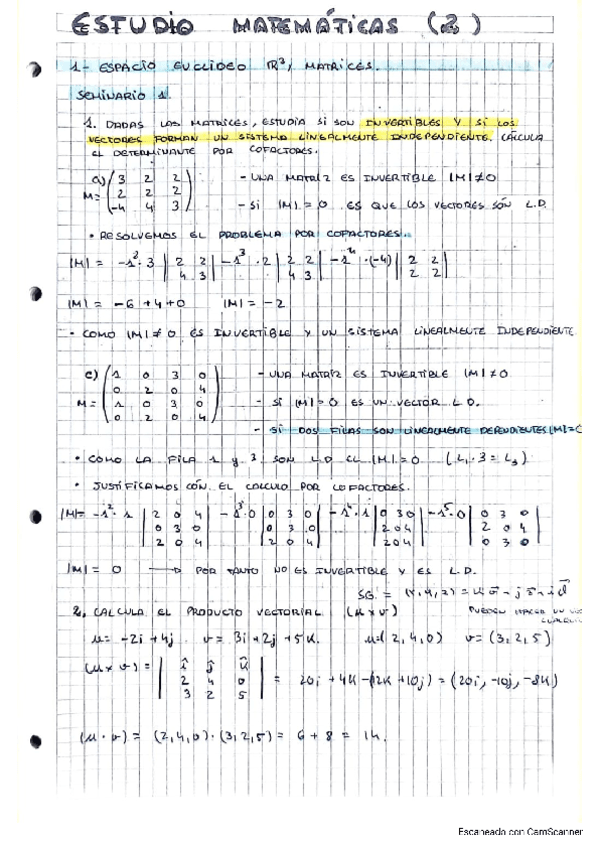 ESTUDIO MATEMÁTICAS (2)
1- ESPACIO EUCLIDEO R³, MATRICES.
SEMINARIO 1.
1. DADAS LAS MATRICES, ESTUDIA SI SON INVERTIBLES Y SI LOS
VECTORES FORMAN UN SISTEMA LINEALMENTE INDEPENDIENTE. CÁLCULA
EL DETERMINANTE POR COFACTORES.
a) M= (3 2 2
2 2 2
-4 4 3)
- UNA MATRIZ ES INVERTIBLE |M|≠0
- SI |M|=0 ES QUE LOS VECTORES SÓN L.D.
• RESOLVEMOS EL PROBLEMA POR COFACTORES.
|M| = -1²·3 |2 2 / 4 3| -1³·2 |2 2 / 4 3| -1⁴·(-4) |2 2 / 2 2|
|M| = -6+4+0 |M| = -2
• COMO |M|≠0 ES INVERTIBLE Y UN SISTEMA LINEALMENTE INDEPENDIENTE
c) M= (1 0 3 0
0 2 0 4
1 0 3 0
0 2 0 4)
- UNA MATRIZ ES INVERTIBLE |M|≠0
- SI |M|=0 ES UN VECTOR L.D.
- SI DOS FILAS SON LINEALMENTE DEPENDIENTES |M|=0
• COMO LA FILA 1 y 3 SON L.D EL |M|=0 (L₁·3=L₃)
• JUSTIFICAMOS CON EL CALCULO POR COFACTORES.
|M|= -1²·1 |2 0 4 / 0 3 0 / 2 0 4| -1³·0 |0 3 0 / 0 3 0 / 2 0 4| -1⁴·1 |0 3 0 / 2 0 4 / 2 0 4| -1⁵·0 |0 3 0 / 2 0 4 / 0 3 0|
|M| = 0 → POR TANTO NO ES INVERTIBLE Y ES L.D.
2. CALCULA EL PRODUCTO VECTORIAL (u x v)
u= -2i+4j v= 3i+2j+5k. u=(2,4,0) v= (3,2,5)
(u x v) = |i j k / 2 4 0 / 3 2 5| = 20i + 4k -(12k +10j) = (20i, -10j, -8k)
(u · v) = (2,4,0)·(3,2,5) = 6 + 8 = 14.
Escaneado con CamScanner